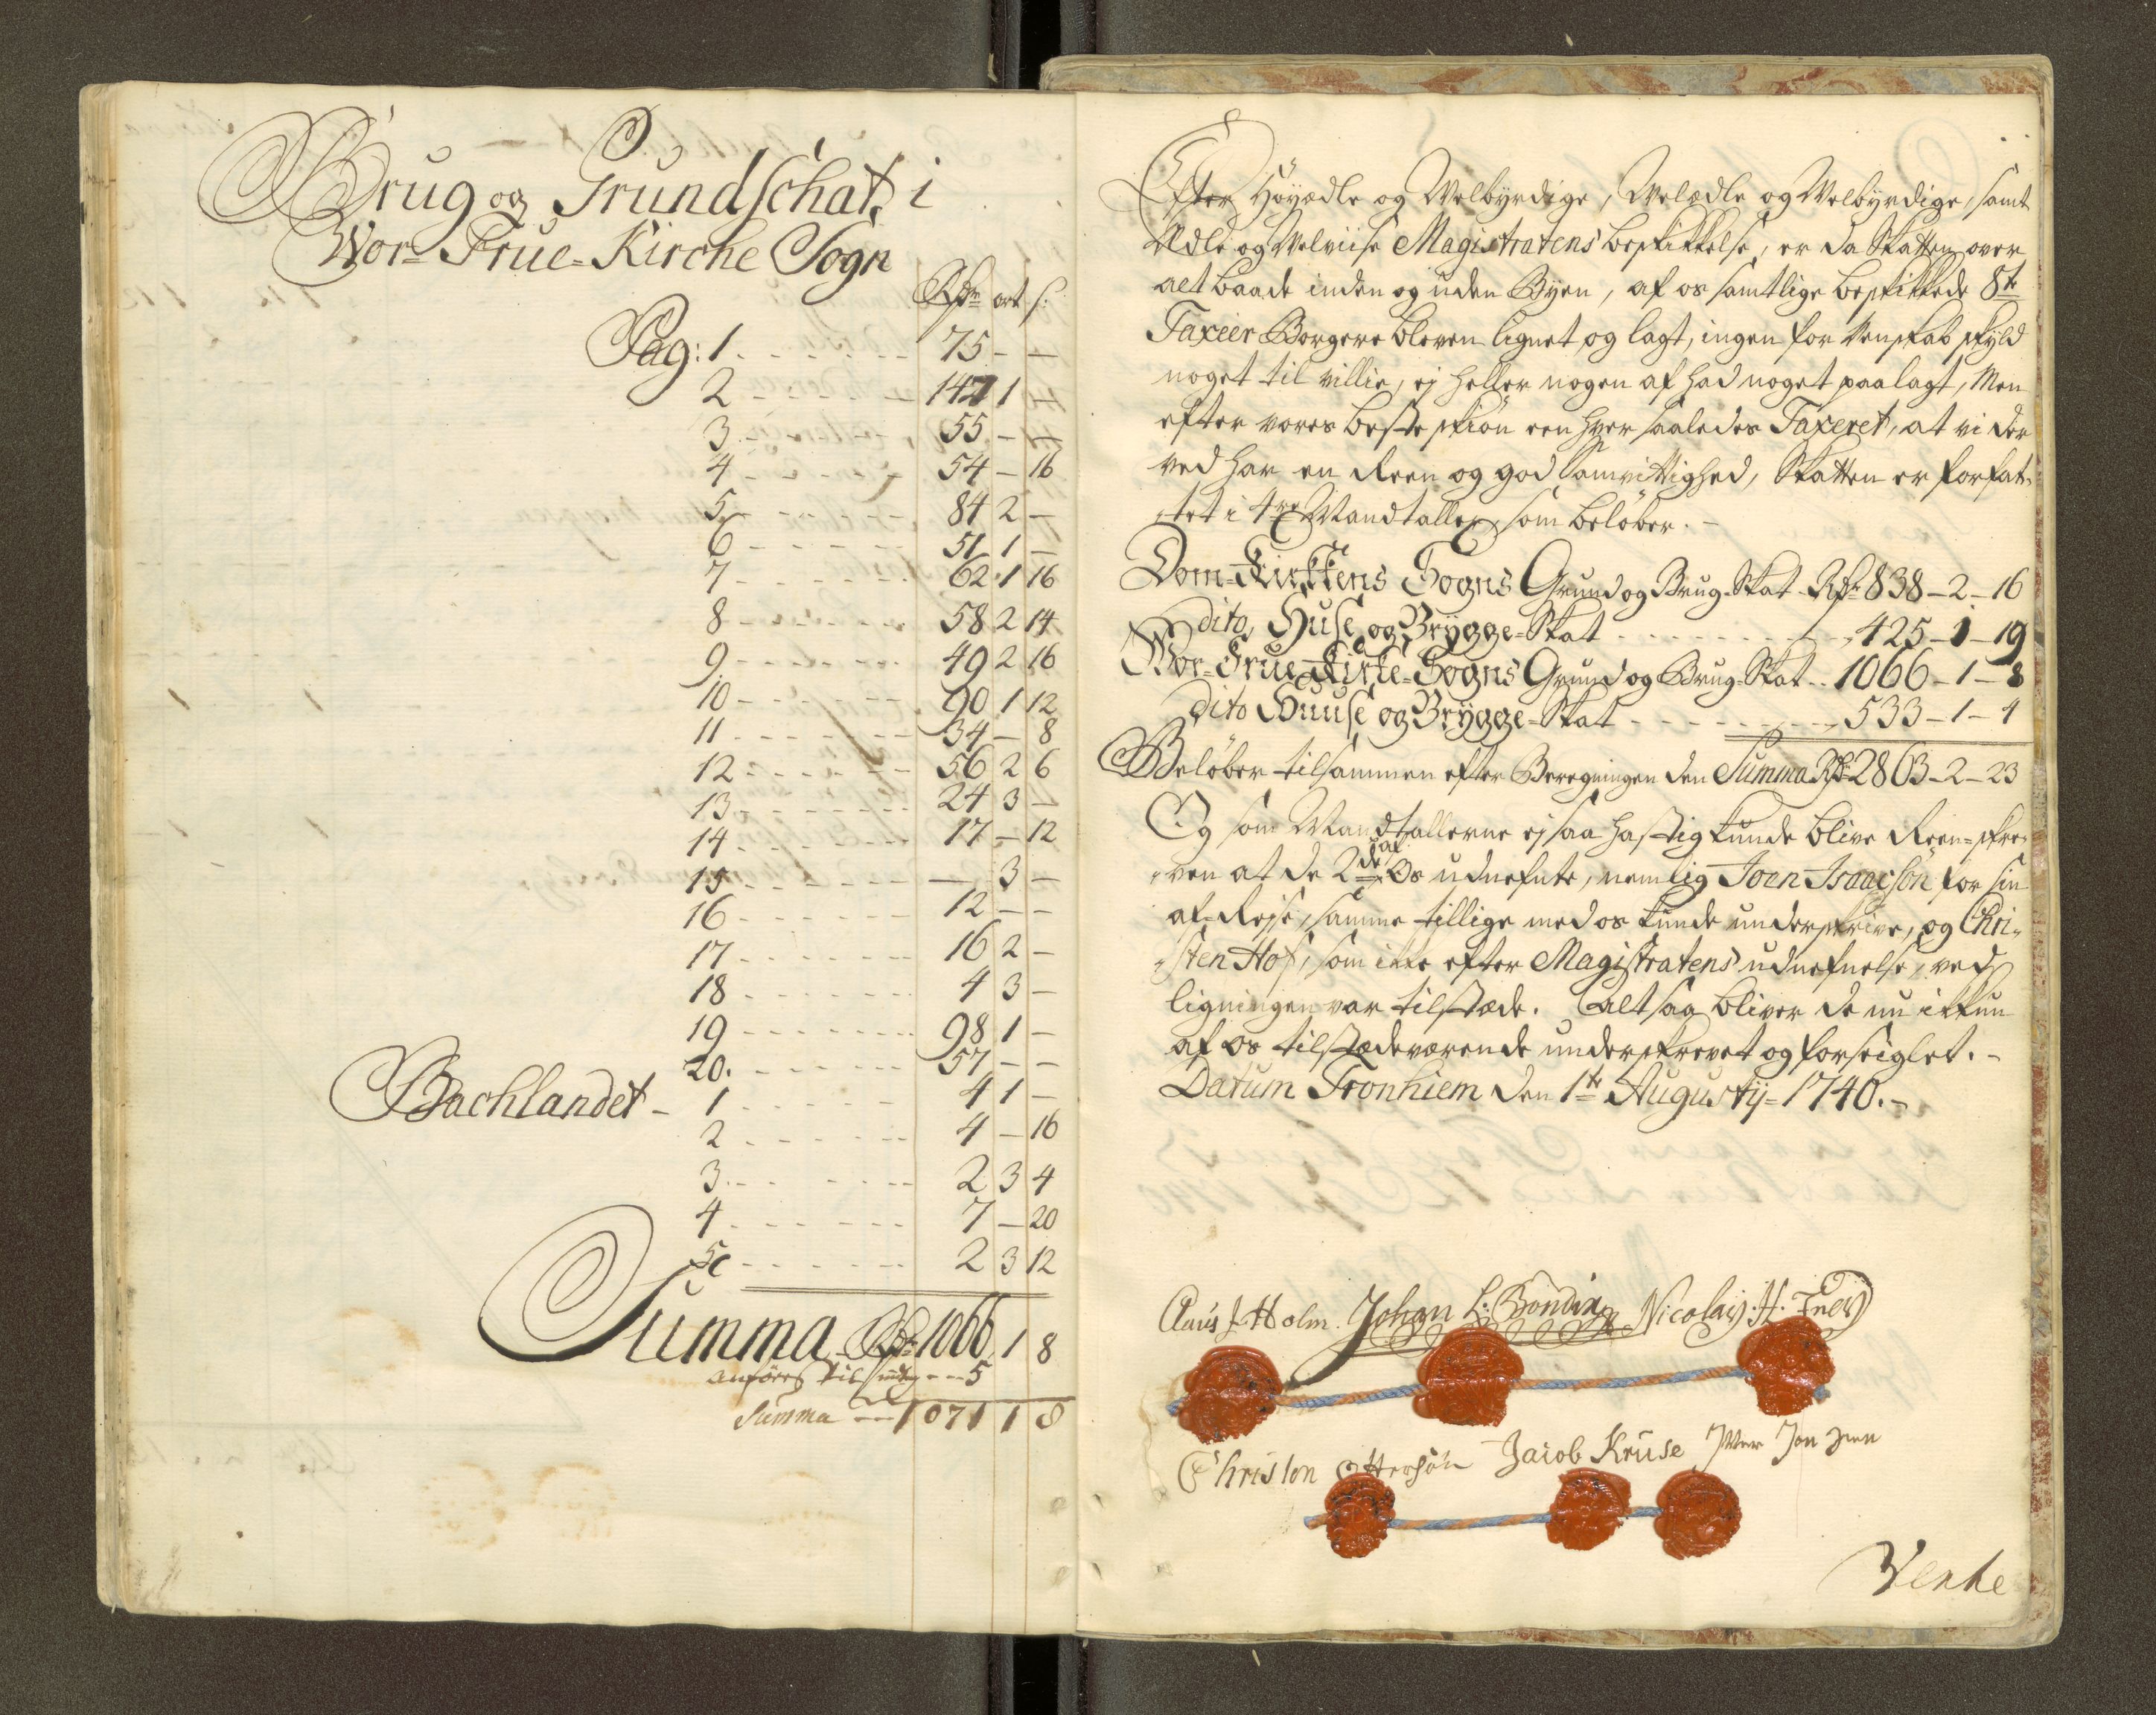 Brug og Grundschat, i
Wor-Frue-Kirche Sogn
Rdr ort s:
Pag: 1 - - - - - - 75 - -
2 - - - - - - 147 1 -
3 - - - - - - 55 - -
4 - - - - - - 54 - 16
5 - - - - - - 84 2 -
6 - - - - - - 51 1 -
7 - - - - - - 62 1 16
8 - - - - - - 58 2 14
9 - - - - - - 49 2 16
10 - - - - - - 90 1 12
11 - - - - - - 34 - 8
12 - - - - - - 56 2 6
13 - - - - - - 24 3 -
14 - - - - - - 17 - 12
15 - - - - - - - 3 -
16 - - - - - - 12 - -
17 - - - - - - 16 2 -
18 - - - - - - 4 3 -
19 - - - - - - 98 1 -
20. - - - - - - 57 - -
Bachlandet - 1 - - - - - - 4 1 -
2 - - - - - - 4 - 16
3 - - - - - - 2 3 4
4 - - - - - - 7 - 20
5 - - - - - - 2 3 12
Summa Rdr 1066 1 8
anføres til - - - 5
Summa - - - 1071 1 8
Efter Høyædle og Welbyrdige, Welædle og Welbyrdige, samt
Ædle og Velviise Magistratens beskikkelse, er da Skatten over
alt baade inden og uden Byen, af os samtlige beskikkede 8te
Taxeer Borgere bleven lignet og lagt, ingen for Venskab skyld
noget til villie, ej heller nogen af had noget paalagt, Men
efter vores beste skiøn een hver saaledes Taxeret, at vi der
ved har en Reen og god Samvittighed, Skatten er forfat-
-tet i 4re Mandtaller som beløber. -
Dom-Kirkkens Sogns Grund og Brug-Skat - Rdr 838 - 2 - 16
dito, Huse og Brygge-Skat - - - - - - 425 - 1 - 19
Vor-Frue-Kirke-Sogns Grund og Brug-Skat - - 1066 - 1 - 8
dito Huuse og Brygge-Skat - - - - - - 533 - 1 - 4
Beløber tilsammen efter Beregningen den Summa Rdr 2863 - 2 - 23
Og som Mandtallerne ej saa hastig kunde blive Reen-skre-
-ven at de 2de af Os udnefnte, nemlig Joen Isaacsøn for sin
af-Rejse, samme tillige med os kunde underskrive, og Chri-
-sten Hof, som ikke efter Magistratens udnefnelse, ved
ligningen var tilstæde. Altsaa bliver de nu ikkun
af os tilstædeværende underskrevet og forseiglet. -
Datum Tronhiem den 1te Augustij - 1740. -
Claus J Holm. Johan L: Bonding Nicolaij: H:
Christen Ottersøn Jacob Kruse Iver Jonsen